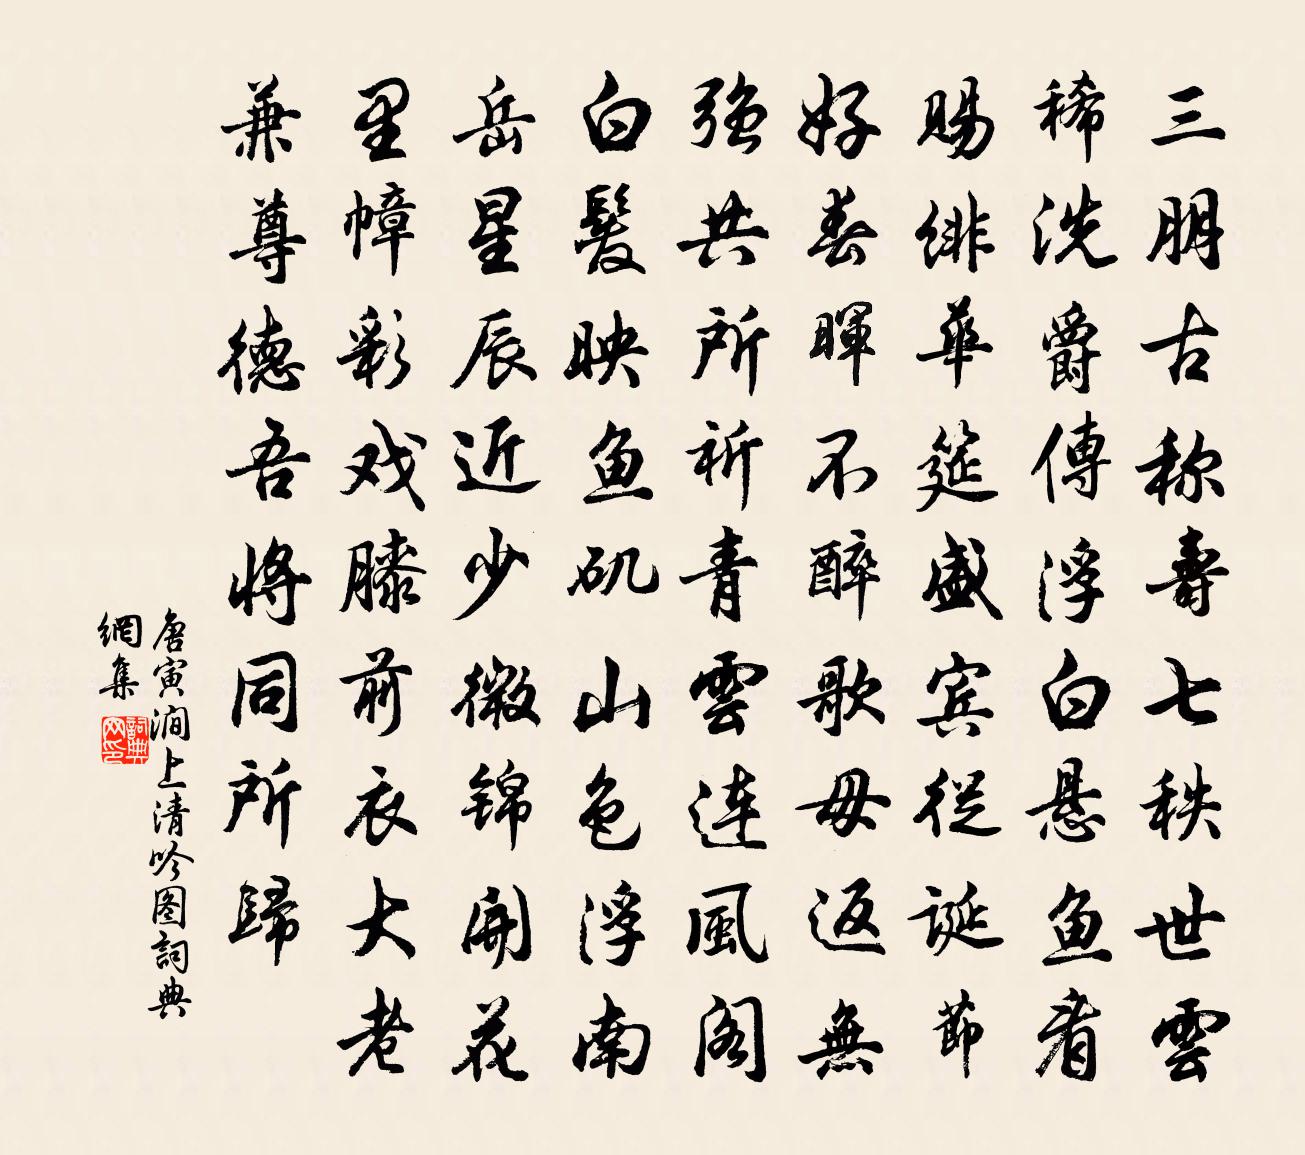 三朋古称壽七秩世雲
稀洗爵傳浮白悬鱼看
賜緋華筵盛宾從誕節
好春暉不醉歌毋返無
强共所祈青雲連風阁
白髮映鱼矶山色浮南
岳星辰近少微锦開花
里幛彩戏膝前衣大老
兼尊德吾将同所歸
唐寅澗上清吟图詞典
網集
詞典
网印